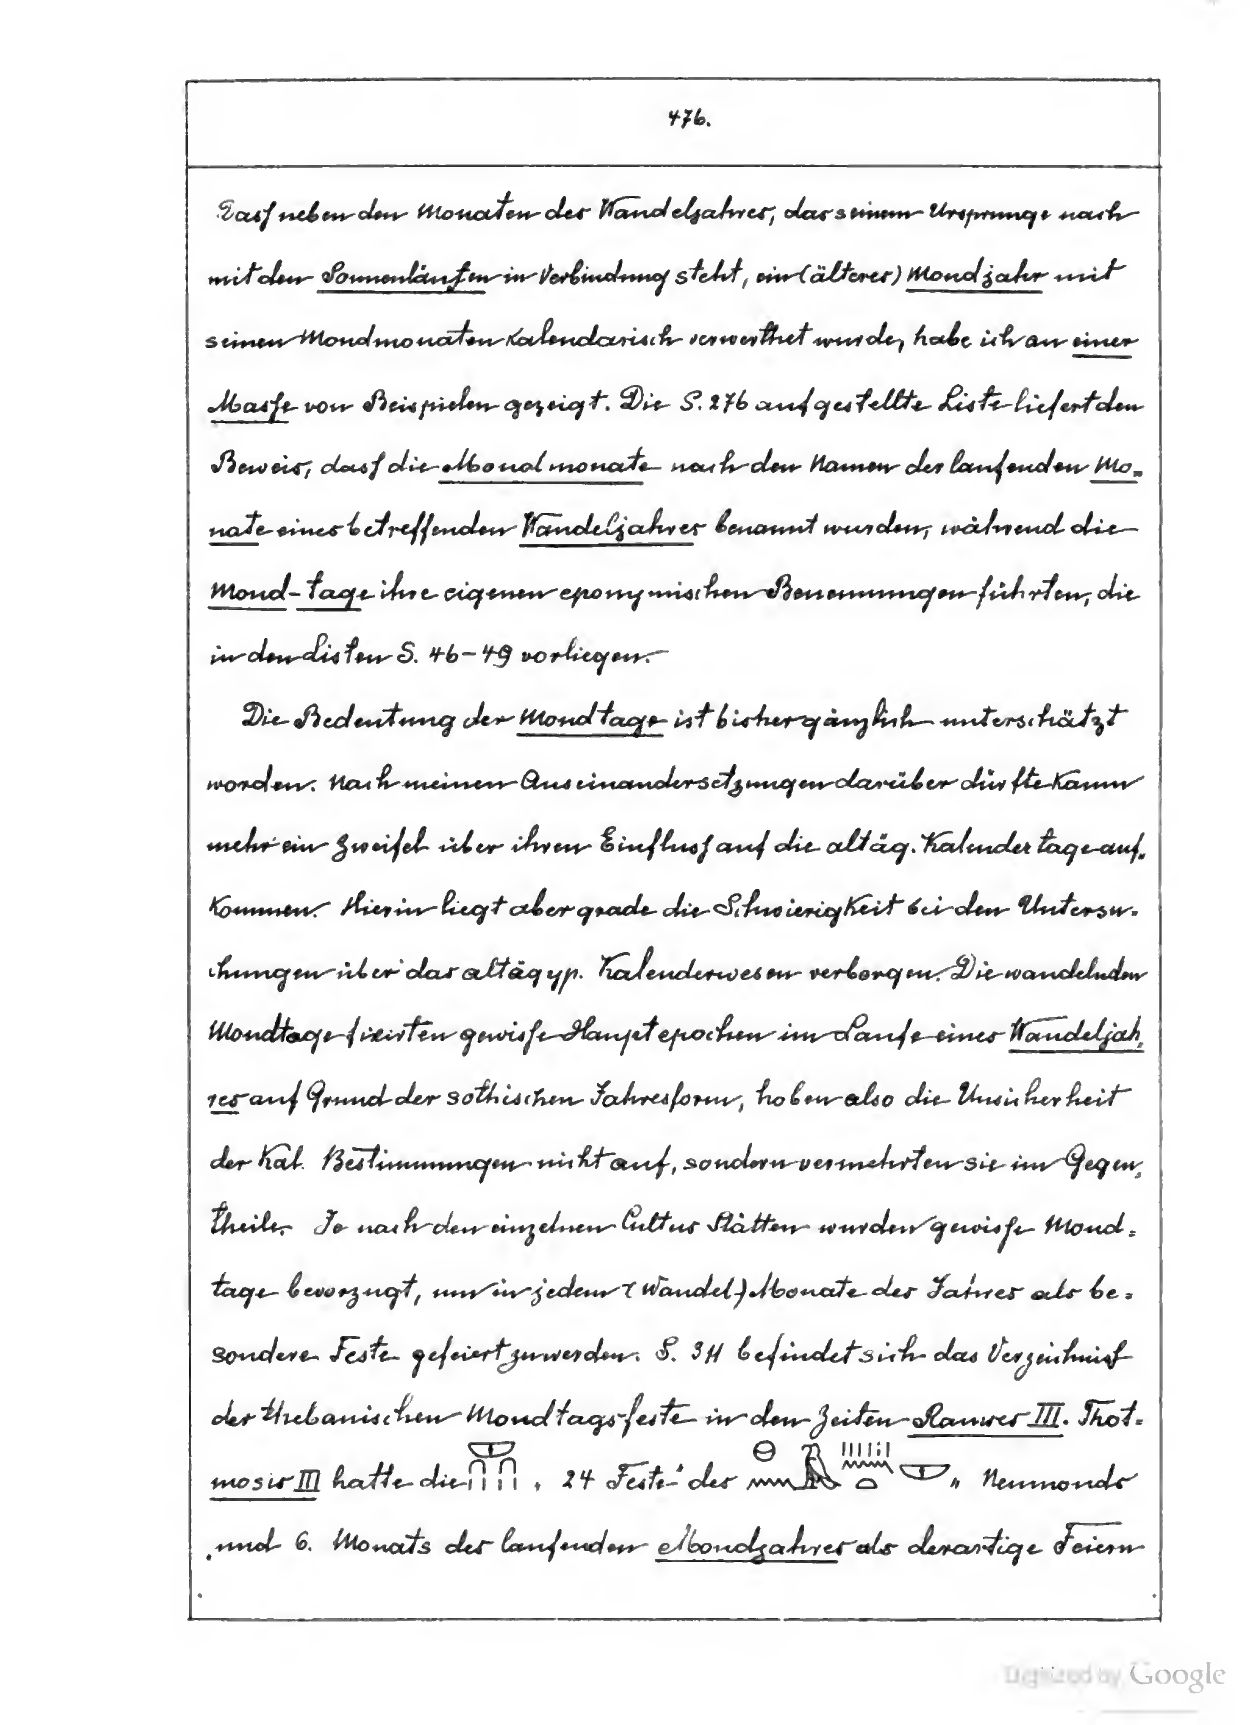 476.
Dass neben den Monaten des Wandeljahres, das seinem Ursprunge nach
mit dem Sonnenläufen in Verbindung steht, ein (älteres) Mondjahr mit
seinen Mondmonaten kalendarisch verwerthet wurde, habe ich an einer
Masse von Beispielen gezeigt. Die S. 276 aufgestellte Liste liefert den
Beweis, dass die Monalmonate nach den Namen der laufenden Mo=
nate eines betreffenden Wandeljahres benannt wurden, während die
Mond-tage ihre eigenen eponymischen Benennungen führten, die
in den Listen S. 46-49 vorliegen.
Die Bedeutung der Mondtage ist bisher gänzlich unterschätzt
worden. Nach meinen Auseinandersetzungen darüber dürfte kaum
mehr ein Zweifel über ihren Einfluss auf die altäg. Kalendertage auf-
kommen. Hierin liegt aber grade die Schwierigkeit bei den Untersu-
chungen über das altägyp. Kalenderwesen verborgen. Die wandelnden
Mondtage fixirten gewisse Hauptepochen im Laufe eines Wandeljah,
res auf Grund der sothischen Jahresform, hoben also die Unsicherheit
der Kal. Bestimmungen nicht auf, sondern vermehrten sie im Gegen,
theile. Je nach den einzelnen Cultus Stätten wurden gewisse Mond=
tage bevorzugt, um in jedem (Wandel-) Monate des Jahres als be=
sondere Feste gefeiert zu werden. S. 311 befindet sich das Verzeichniss
der thebanischen Mondtags-feste in den Zeiten Ramses III. Thot=
mosis III hatte die „ 24 Feste“ des „ Neumonds
und 6. Monats des laufenden Mondjahres als derartige Feiern
Digitized by Google